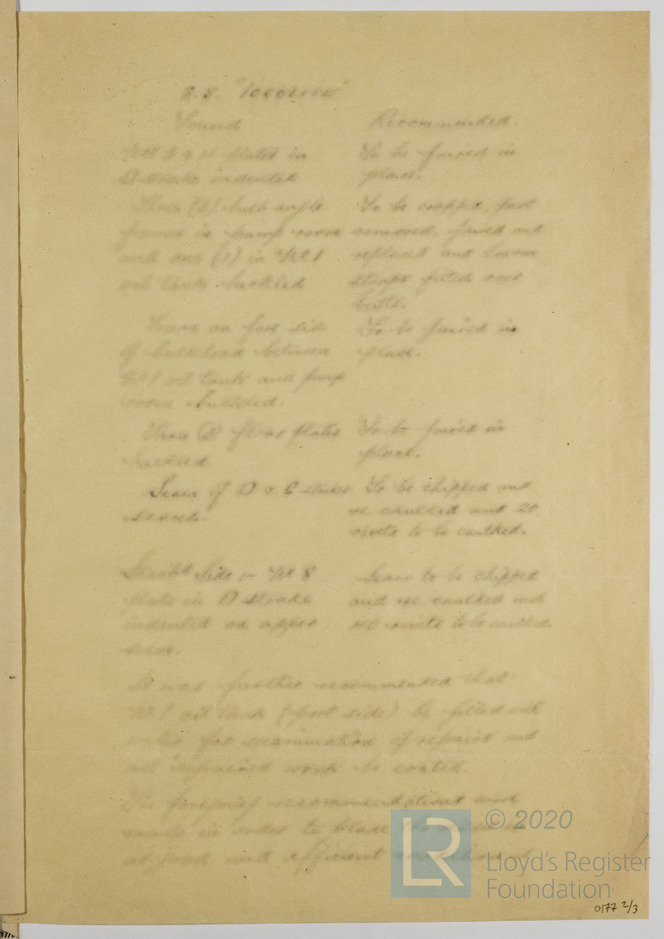 S.S. "
Found Recommended.
plates in To be faired in
D strake indented place.
Three (3) bulb angle To be cropped, part
frames in pump room removed, faired and
and one (1) in No 1 replaced and
oil tank buckled straps fitted over
butts.
on port side To be faired in
of bulkhead between place.
No 1 oil tank and pump
room buckled.
Three (3) floor plates To be faired in
buckled. place.
Seam of D & C strakes To be chipped and
re caulked and 20
rivets to be caulked.
Side No 8 Seam to be chipped
plate in D strake and re caulked and
indented on upper rivets to be caulked.
seam.
It was further recommended that
No 1 oil tank (port side) be filled with
water for examination of repairs and
all impaired work be coated.
The foregoing recommendations were
made in order to place the vessel in
as good and efficient
LR © 2020
Lloyd's Register
Foundation
0177 2/3